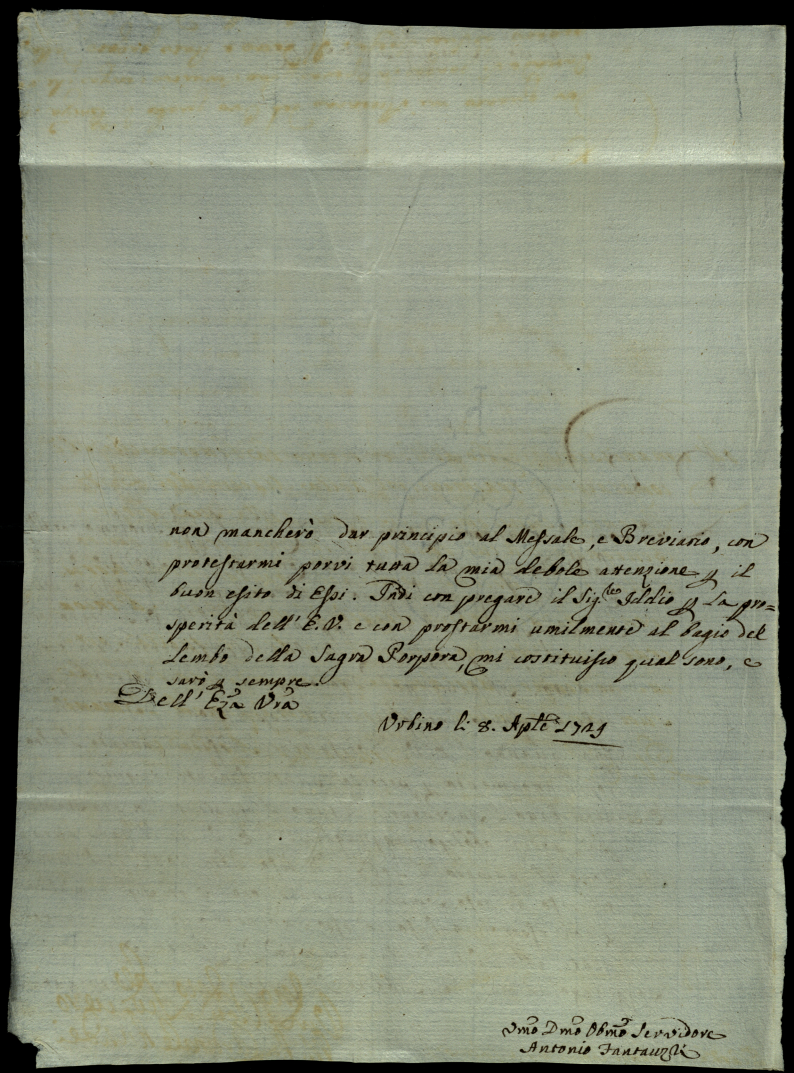 non mancherò dar principio al Messale, e Breviario, con
protestarmi porvi tutta la mia debole attenzione p il
buon esito di Essi. Indi con pregare il Sig.re Iddio p la pro=
sperità dell' E.V. e con prostarmi umilmente al bagio del
Lembo della Sagra Porpora, mi costituisco qual sono, e
sarò p sempre.
Dell' Eza Vra
Urbino li 8. Aple 1729
Vmo Dmo Obmo Servidore
Antonio Fantauzzi